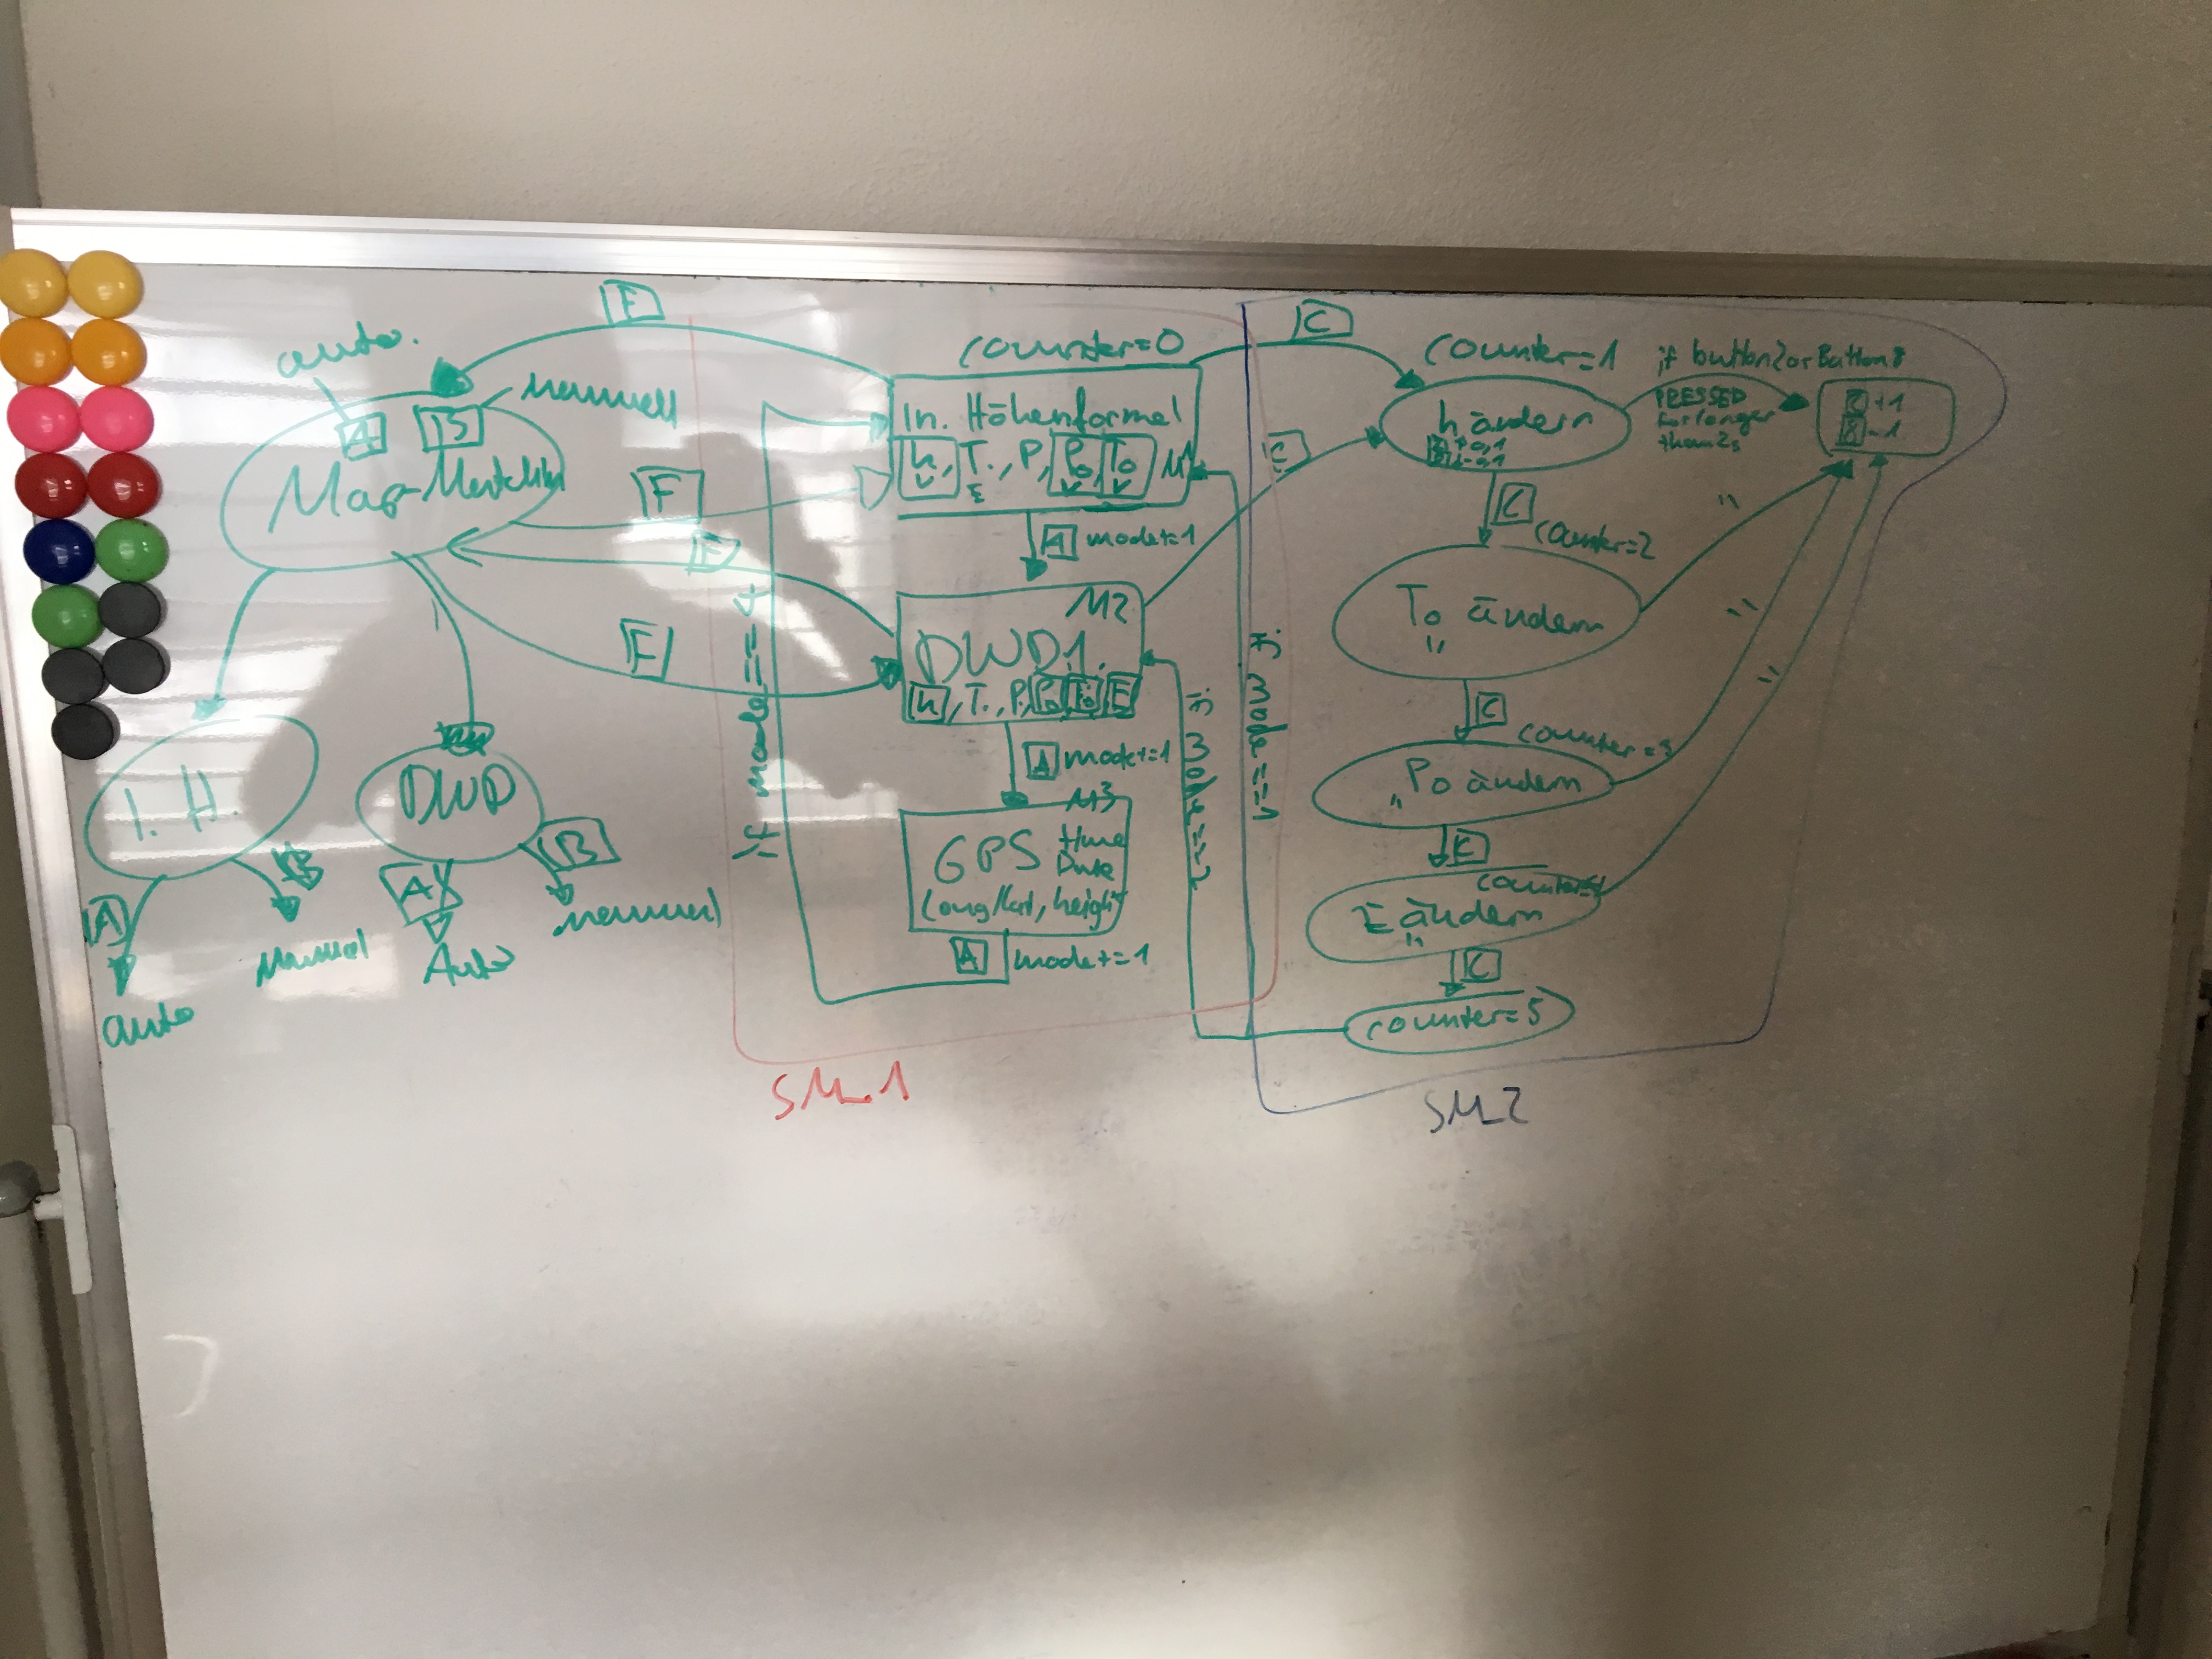 F
auto.
A
B
manuell
Map-Matching
F
F
F
I. H.
A
auto
B
Manuel
DWD
A
Auto
B
manuel
counter=0
In. Höhenformel
h, T., P, Po, To
M1
A mode+=1
M2
DWD1.
h, T., P, Po, To, E
A mode+=1
M3
GPS
time
Date
long/lat, height
A mode+=1
if mode == 4
SM_1
C
C
if mode == 2
counter=1
h ändern
if button2orButton8
PRESSED
for longer
than 2s
2 +1
8 -1
C
counter=2
To ändern
"
"
C
counter=3
"
Po ändern
"
C
counter=4
"
E ändern
"
C
counter=5
SM_2